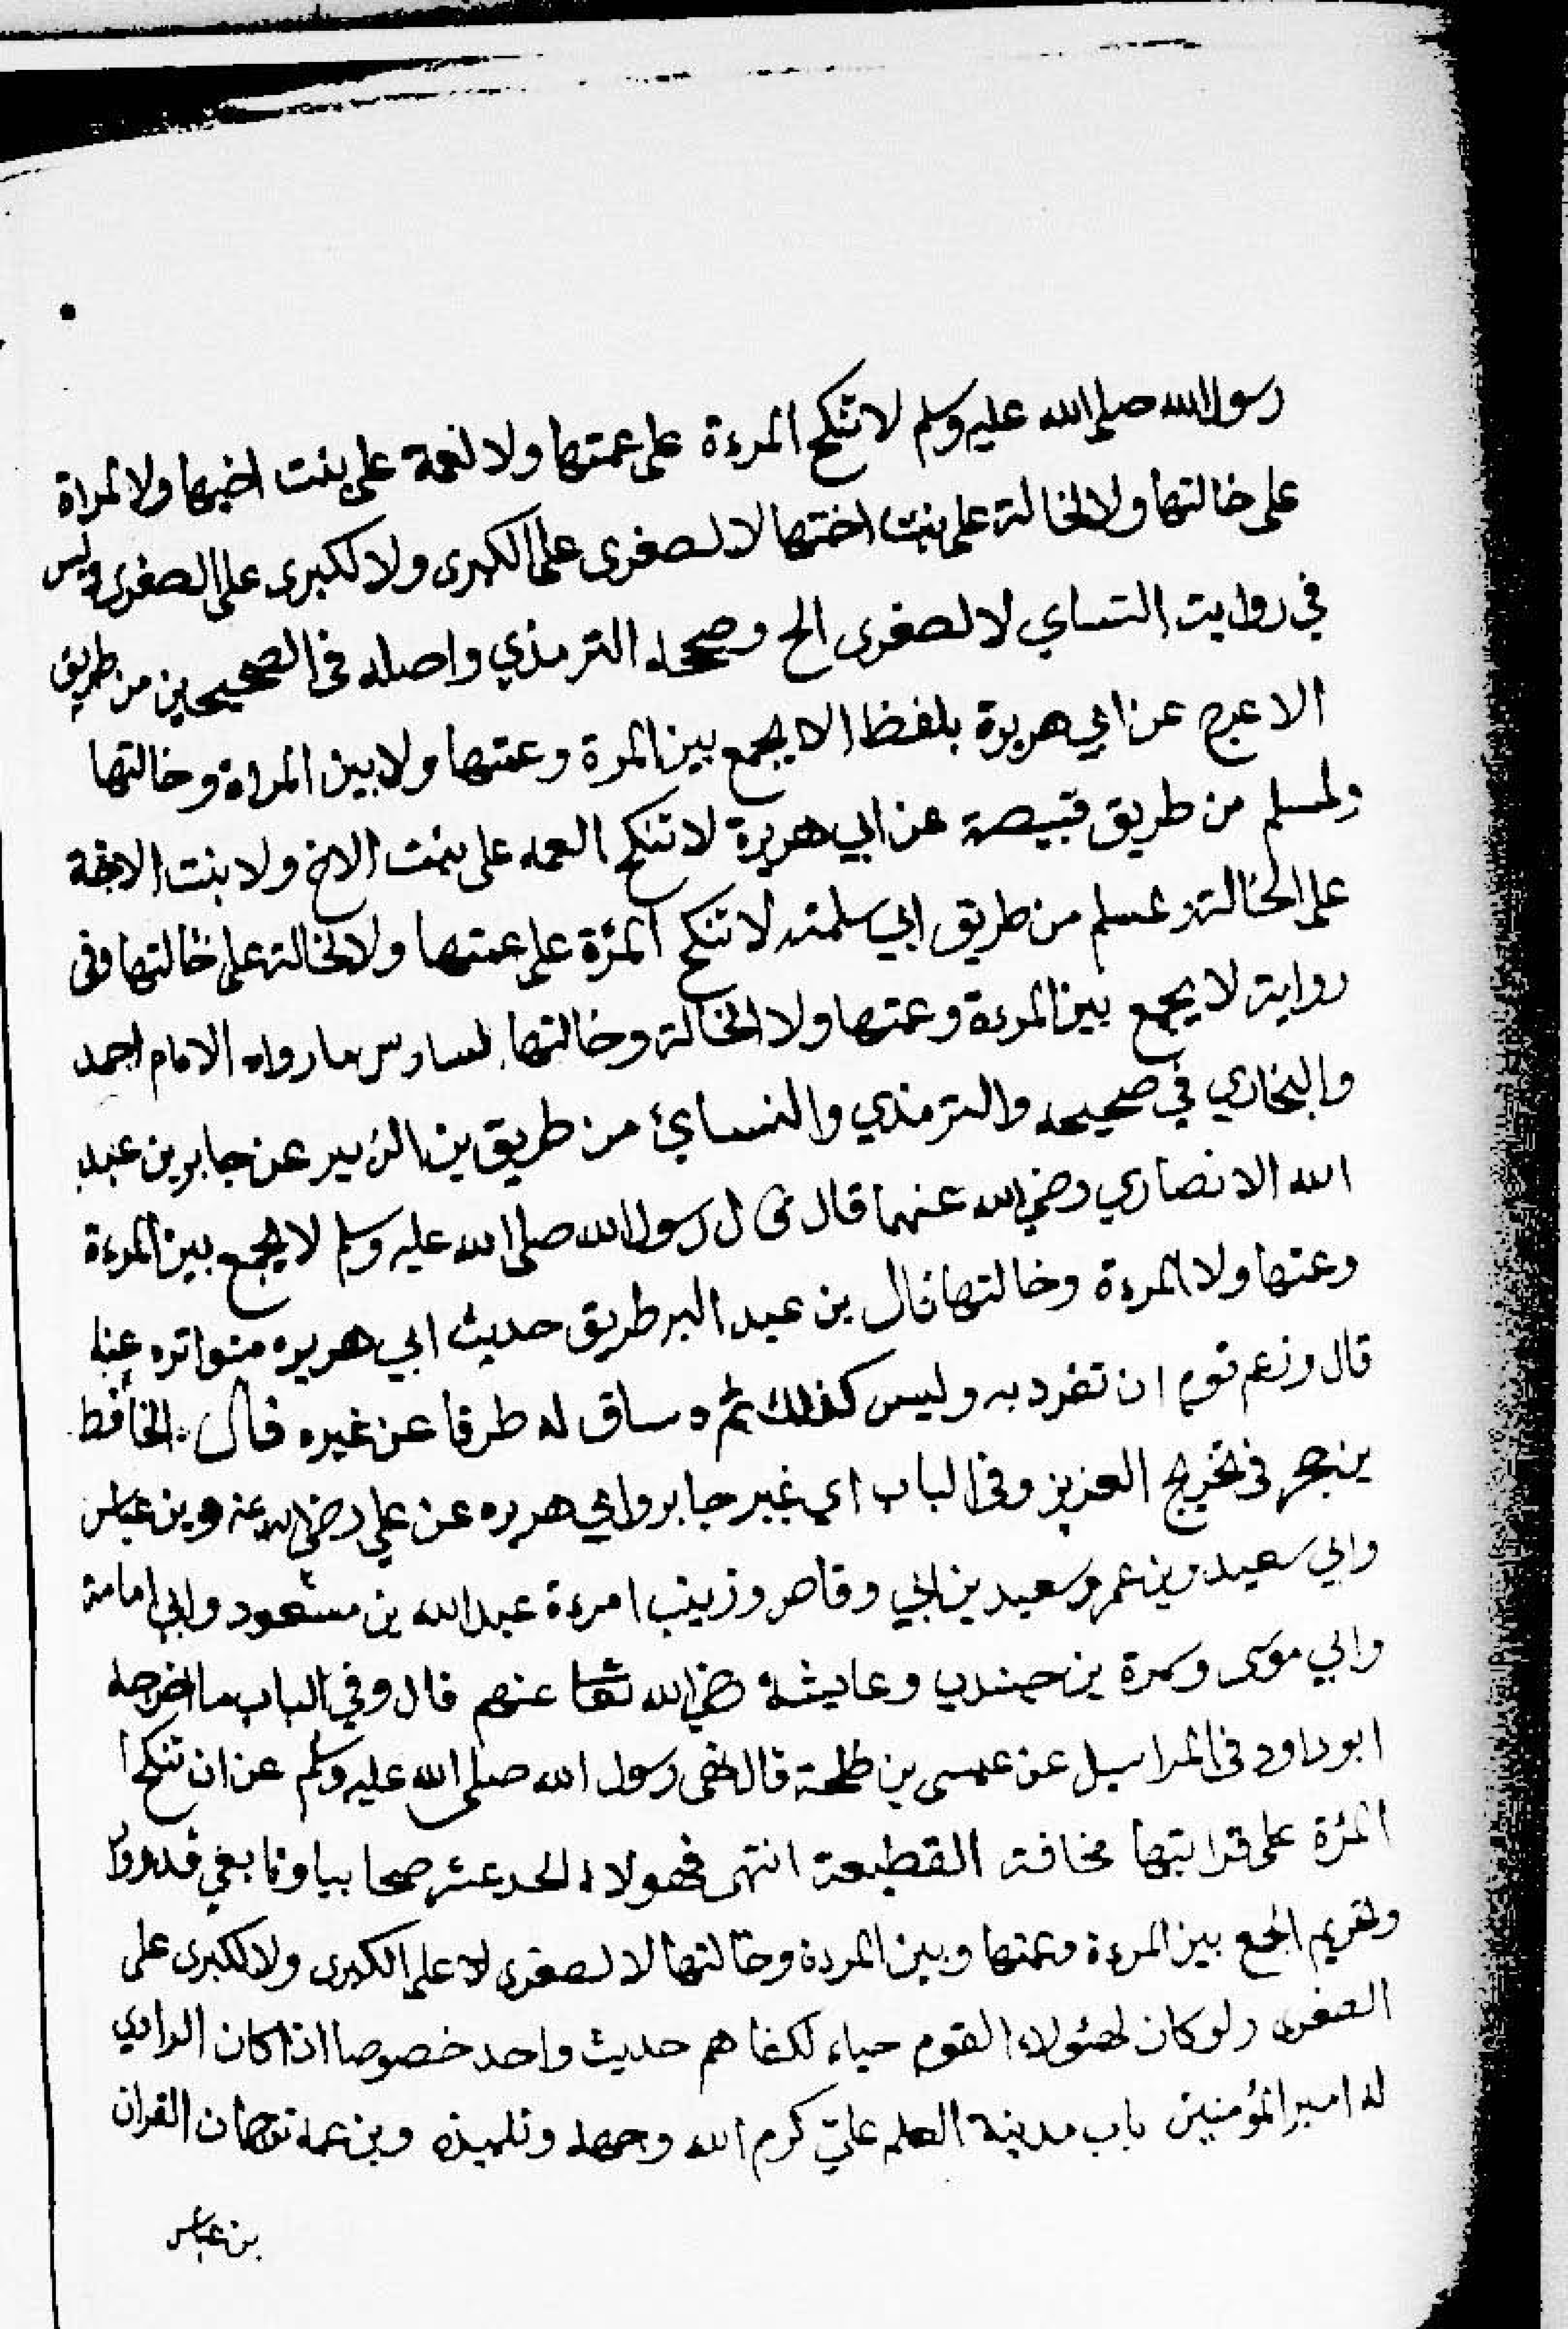 رسول الله صلى الله عليه وسلم لا تنكح المرءة على عمتها ولا لعمة على بنت اخيها ولا لمراة
على خالتها ولا لخالة على بنت اختها لا لصغرى على الكبرى ولا لكبرى على الصغرى وليس
في روايت النساي لا لصغرى الخ وصححه الترمذي واصله فى الصحيحين من طريق
الاعرج عن ابي هريرة بلفظ الا يجمع بين المرة وعمتها ولا بين المراة وخالتها
ولمسلم من طريق قبيصة عن ابي هريرة لا تنكح العمه على بنت الاخ ولا بنت الاخة
على الخالة ولمسلم من طريق ابي سلمة لا تنكح المرءة على عمتها ولا لخالة على خالتها وفى
رواية لا يجمع بين المرءة وعمتها ولا الخالة وخالتها لسادس ما رواه الامام احمد
والبخاري في صحيحه والترمذي والنسائ من طريق بن الزبير عن جابر بن عبد
الله الانصاري رضي الله عنهما قال رسول الله صلى الله عليه وسلم لا يجمع بين المرءة
وعمتها ولا المرءة وخالتها قال بن عبد البر طريق حديث ابي هريره متواتره عنا
قال وزعم قوم ان تفرد به وليس كذلك ثم وساق له طرقا عن غيره قال الحافظ
بن حجر فى تخريج العزيز وفى الباب اي غير جابر وابي هريره عن علي رضي الله عنه وبن عباس
وابي سعيد وبن عمر وسعيد بن ابي وقاص وزينب امرءة عبد الله بن مسعود وابي امامة
وابي موسى وسمرة بن جندب وعايشة رضي الله تعا عنهم قال وفي الباب ما اخرجه
ابو داود فى المراسيل عن عيسى بن طلحة قال نهى رسول الله صلى الله عليه وسلم عن ان تنكح ا
المرءة على قرابتها مخافة القطيعة انتهى فهولاء الحد عشر صحابيا وتابعي قد رووا
وتحريم الجمع بين المرءة وعمتها وبين المرءة وخالتها لا لصغرى لا على الكبرى ولا لكبرى على
الصغرى ولو كان لهئولاء القوم حياء لكفاهم حديث واحد خصوصا اذا كان الراوي
له امير المؤمنين باب مدينة العلم علي كرم الله وجهه وتلميذه وبن عمه ترجمان القران
بن عباس